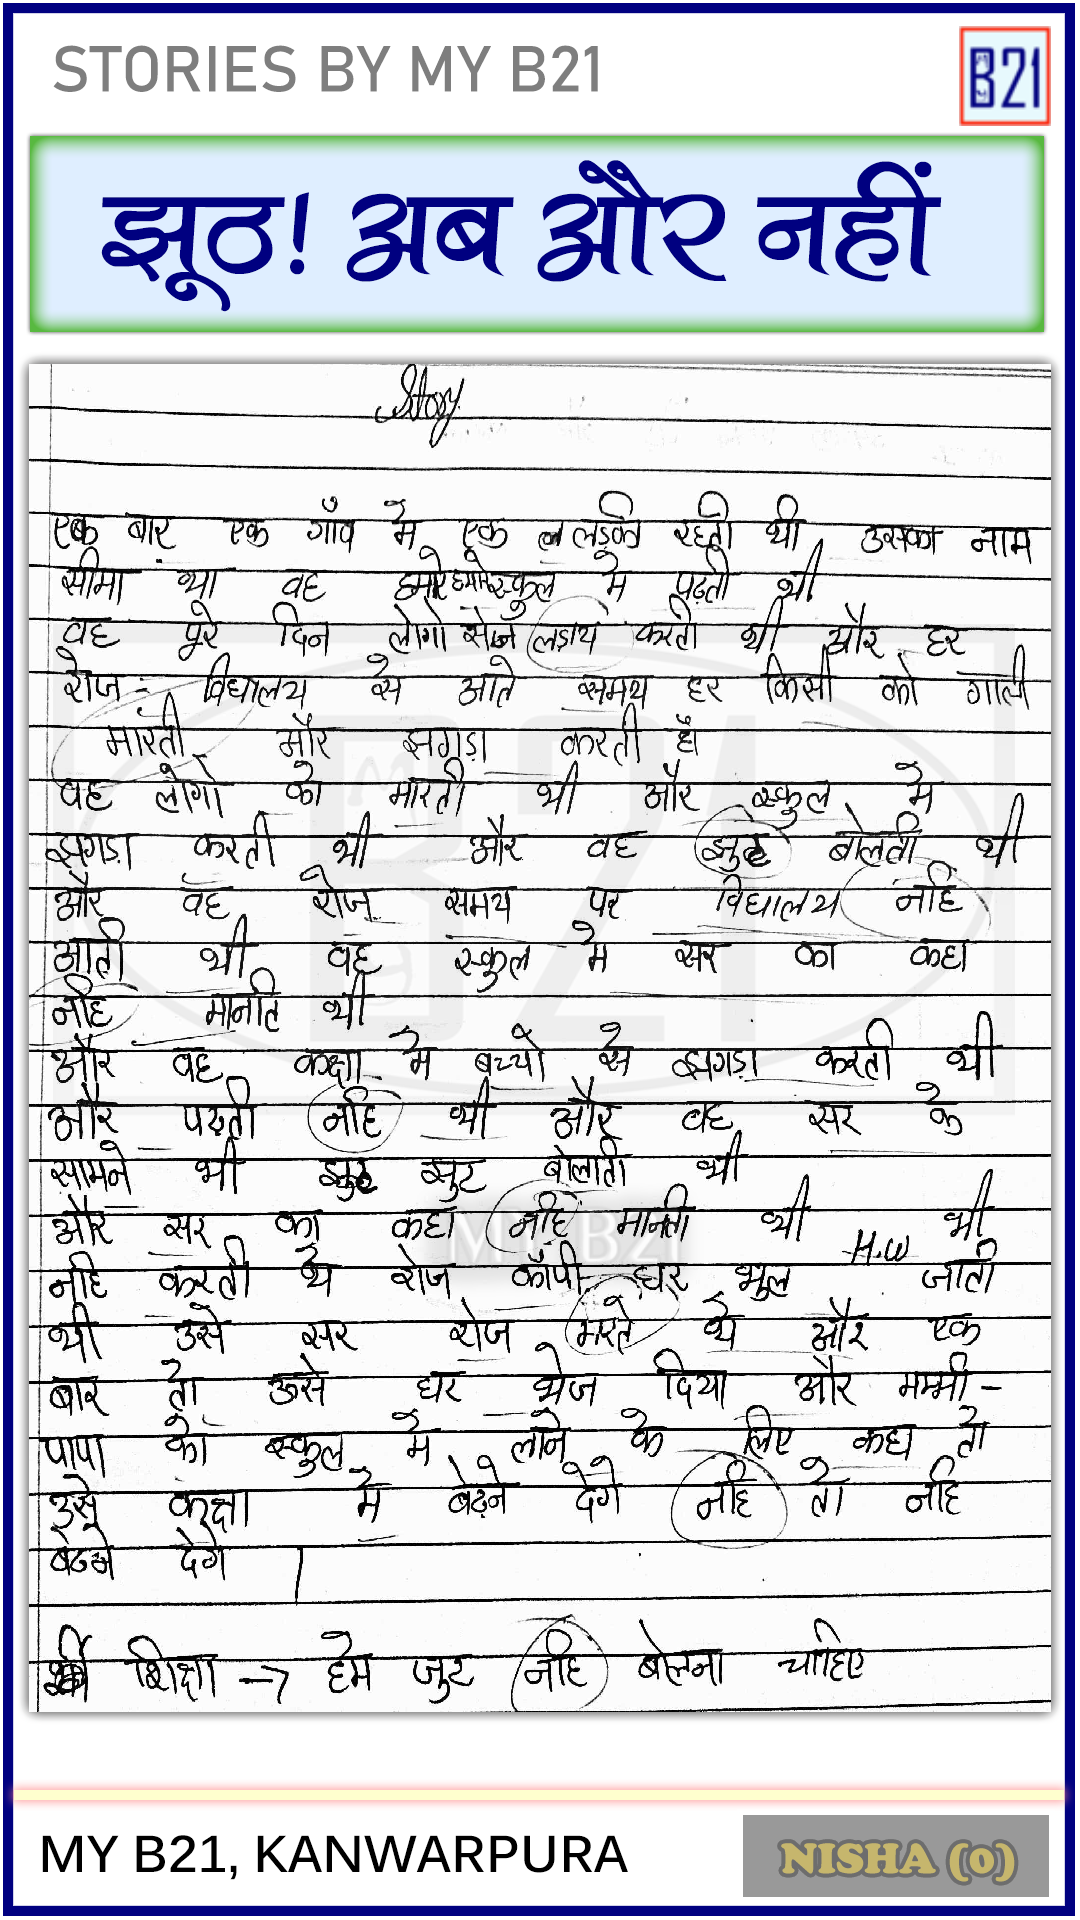 STORIES BY MY B21
B21
झूठ! अब और नहीं
Story
एक बार एक गाँव मे एक लडकी रहती थी उसका नाम
सीमा था वह हमारे स्कुल मे पढ़ती थी
वह पुरे दिन लोगो से लडाय करती थी और हर
रोज - विद्यालय से आते समय हर किसी को गाली
मारती और झगड़ा करती है
वह लोगो को मारती थी और स्कुल मे
झगड़ा करती थी और वह झुठ बोलती थी
और वह रोज समय पर विद्यालय नहि
आती थी वह स्कुल मे सर का कहा
नहि मानति थी
और वह कक्षा मे बच्चो से झगड़ा करती थी
और पढ़ती नहि थी और वह सर के
सामने भी झुट बोलाती थी
और सर का कहा नहि मानती थी भी
नहि करती थे रोज कॉपी घर भुल H.W जाती
थी उसे सर रोज मरते थे और एक
बार तो ऊसे घर भेज दिया और मम्मी -
पापा को स्कुल मे लाने के लिए कहा तो
उसे कक्षा मे बेढ़ने देगे नहि तो नहि
बेढने देगे ।
शिक्षा → हमे जुट नहि बोलना चाहिए
MY B21, KANWARPURA
NISHA (0)